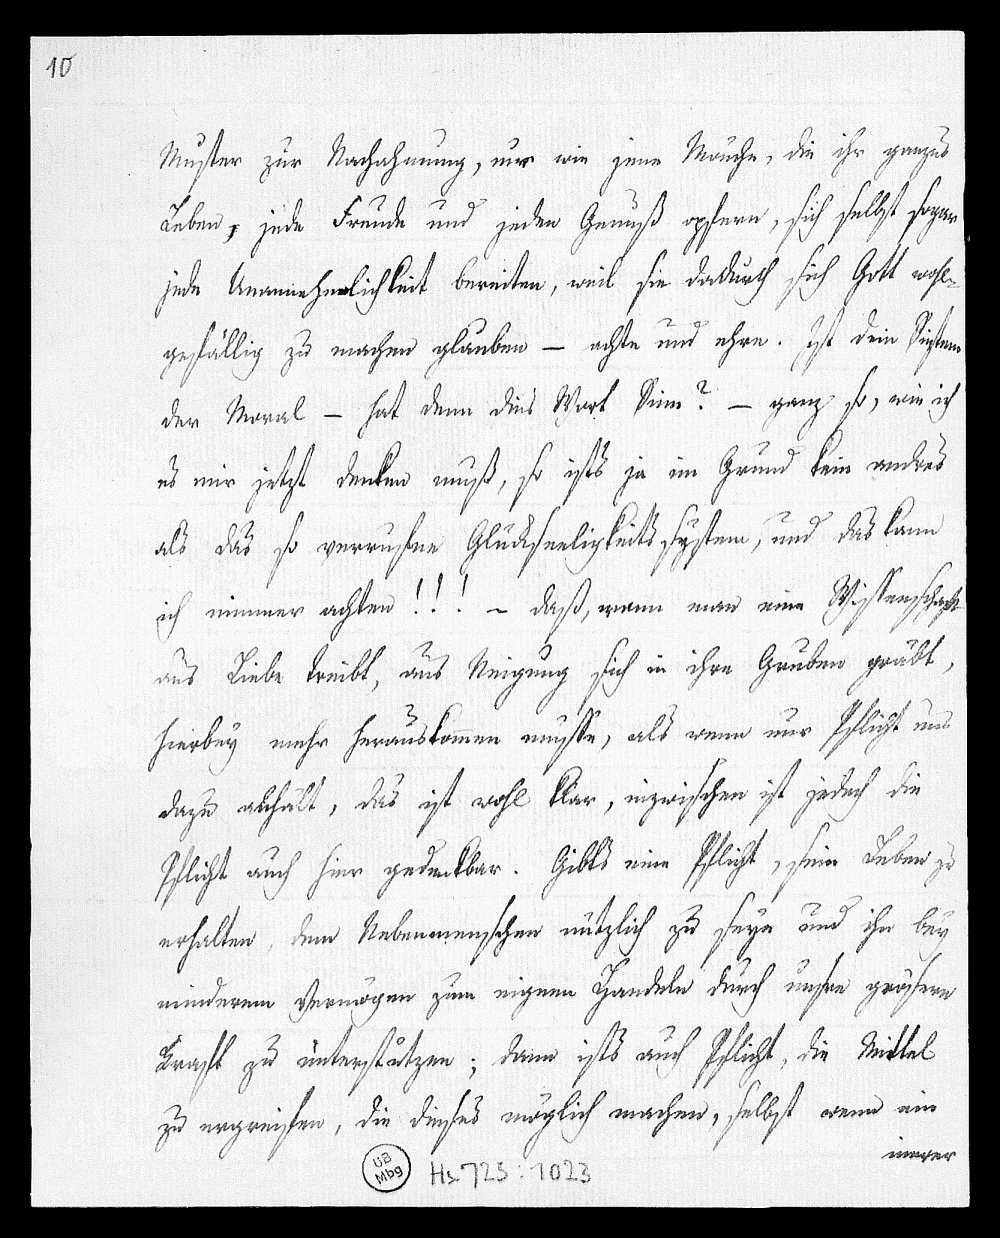 10
Muster zur Nachahmung, nur wie jene Mönche, die ihr ganzes
Leben, jede Freude und jeden Genuß opfern, sich selbst sogar
jede Unannehmlichkeit bereiten, weil sie dadurch sich Gott wohl-
gefällig zu machen glauben — achte und ehre. Ist dein System
der Moral — hat denn dies Wort Sinn? — ganz so, wie ich
es mir jetzt denken muß, so ists ja im Grund kein andres
als das so verrufne Glückseeligkeitssystem, und das kann
ich nimmer achten!!! — daß, wenn man eine Wissenschaft
aus Liebe treibt, aus Neigung sich in ihre Gruben gräbt,
hierbey mehr herauskommen müsse, als wenn nur Pflicht uns
dazu anhält, das ist wohl klar, inzwischen ist jedoch die
Pflicht auch hier gedenkbar. Gibts eine Pflicht, sein Leben zu
erhalten, dem Nebenmenschen nützlich zu seyn und ihn bey
minderem Vermögen zum eignen Handeln durch unsre grösere
Kraft zu unterstützen; dann ists auch Pflicht, die Mittel
zu ergreifen, die dieses möglich machen, selbst wenn ein
innrer
UB
Mbg
Hs. 725:1023